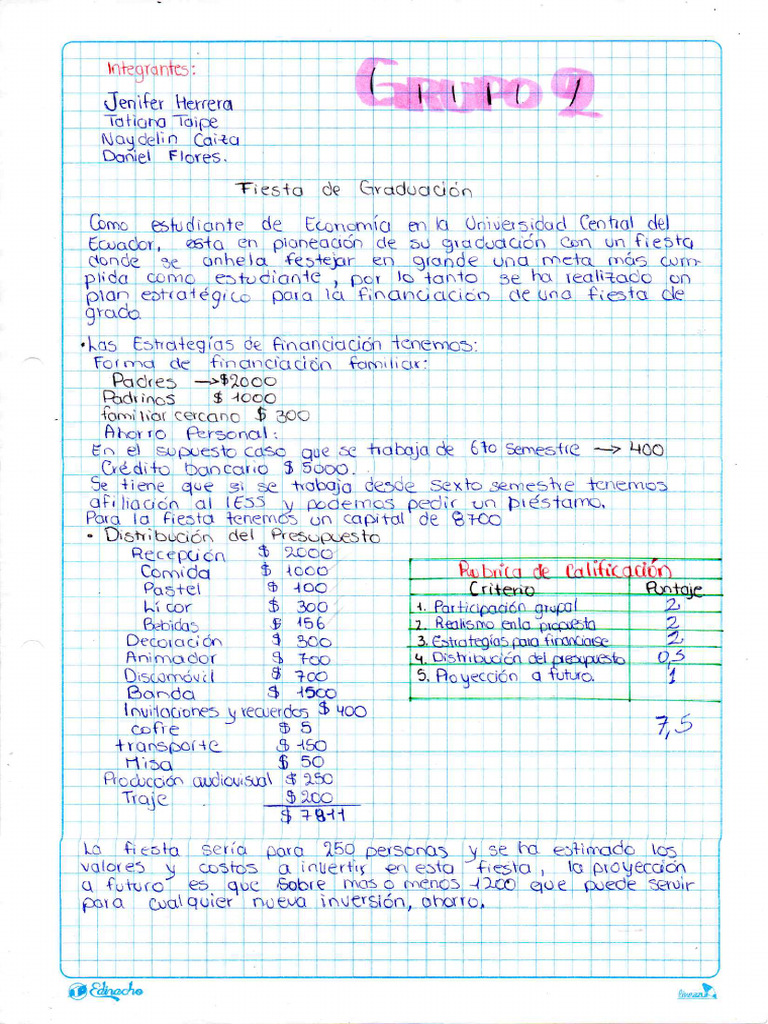 Integrantes:
GRUPO 2
Jenifer Herrera
Tatiana Taipe
Naydelin Caiza
Daniel Flores.
Fiesta de Graduación
Como estudiante de Economía en la Universidad Central del
Ecuador, esta en planeación de su graduación con un fiesta
donde se anhela festejar en grande una meta más cum-
plida como estudiante, por lo tanto se ha realizado un
plan estratégico para la financiación de una fiesta de
grado
• Las Estrategías de financiación tenemos:
Forma de financiación familiar:
Padres → $2000
Padrinos $ 1000
familiar cercano $ 300
Ahorro Personal:
En el supuesto caso que se trabaja de 6to semestre → 400
Crédito bancario $ 5000.
Se tiene que si se trabaja desde sexto semestre tenemos
afiliación al IESS y podemos pedir un préstamo.
Para la fiesta tenemos un capital de 8700
• Distribución del Presupuesto
Recepción $ 2000
Comida $ 1000
Pastel $ 100
Licor $ 300
Bebidas $ 156
Decoración $ 300
Animador $ 700
Discomóvil $ 700
Banda $ 1500
Invitaciones y recuerdos $ 400
cofre $ 5
transporte $ 150
Misa $ 50
Producción audiovisual $ 250
Traje $ 200
$ 7811
Rubrica de Calificación
Criterio Puntaje
1. Participación grupal 2
2. Realismo en la propuesta 2
3. Estrategías para financiarse 2
4. Distribución del presupuesto 0,5
5. Proyección a futuro. 1
7,5
La fiesta sería para 250 personas y se ha estimado los
valores y costos a invertir en esta fiesta, la proyección
a futuro es que sobre mas o menos 1200 que puede servir
para cualquier nueva inversión, ahorro.
Edinacho